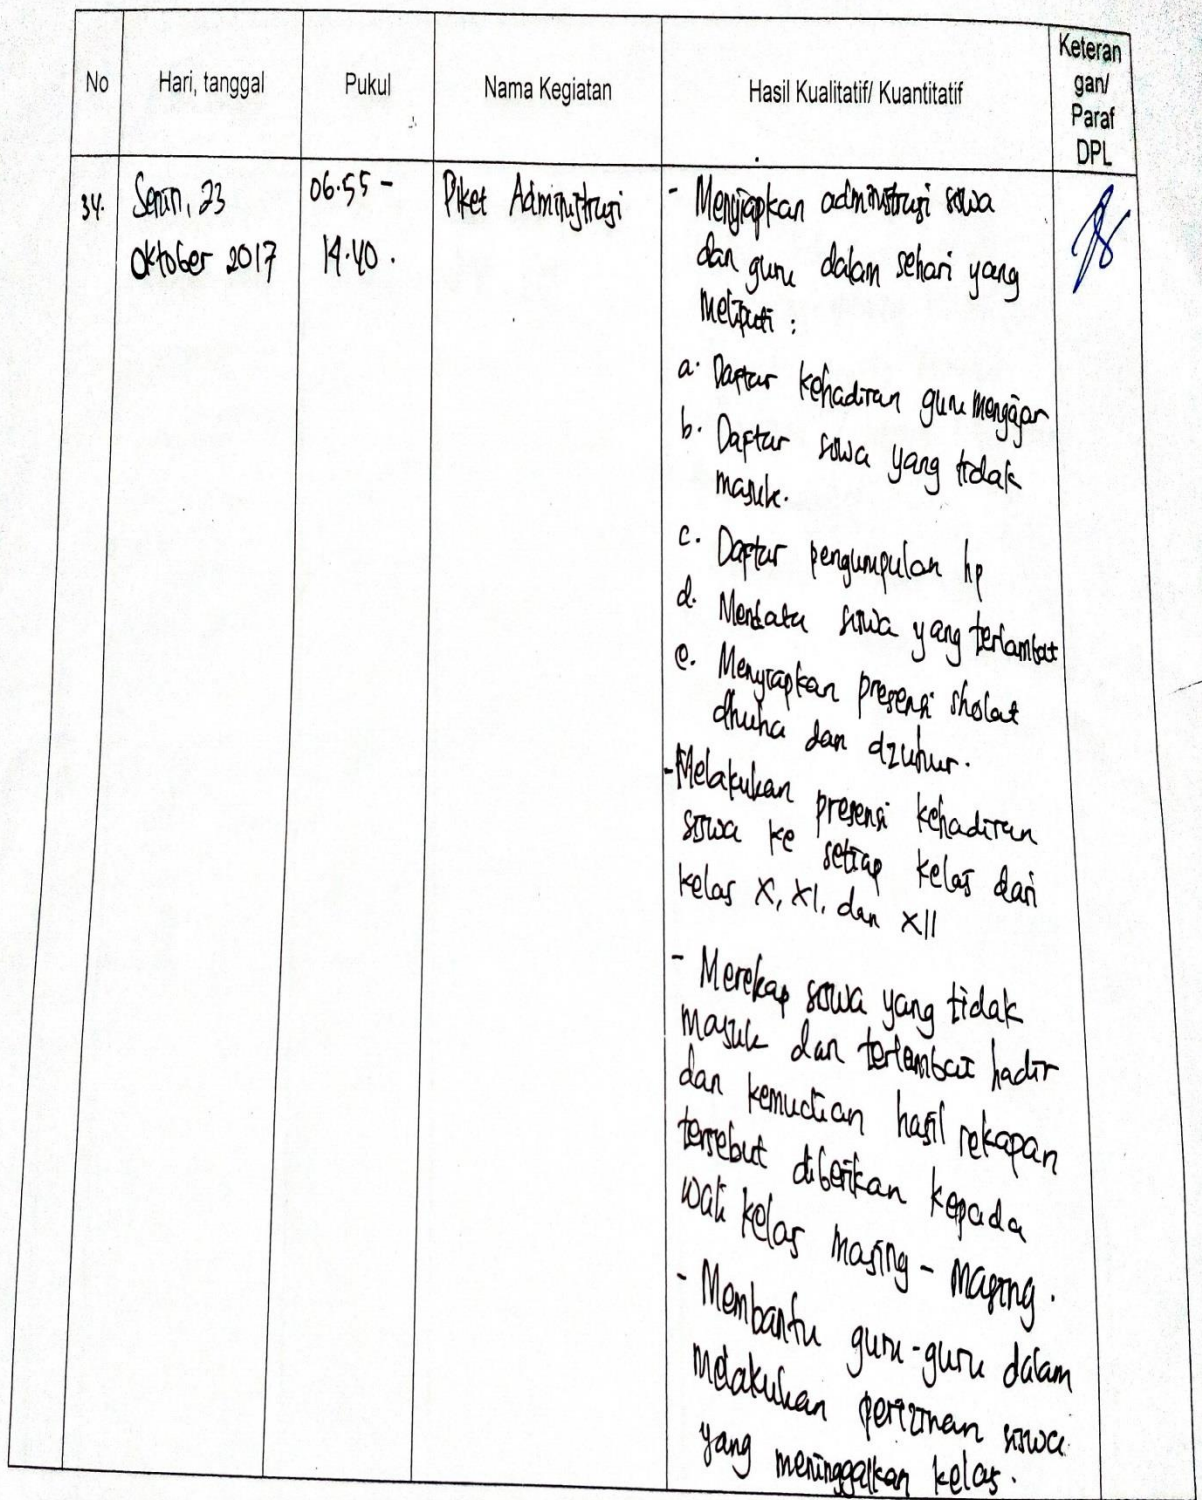 No
Hari, tanggal
Pukul
Nama Kegiatan
Hasil Kualitatif/ Kuantitatif
Keteran
gan/
Paraf
DPL
34.
Senin, 23
Oktober 2017
06.55 -
14.40.
Piket Administrasi
- Menyiapkan administrasi siswa
dan guru dalam sehari yang
meliputi :
a. Daftar kehadiran guru mengajar
b. Daftar siswa yang tidak
masuk.
c. Daftar pengumpulan hp
d. Mendata siswa yang terlambat
e. Menyiapkan presensi sholat
dhuha dan dzuhur.
- Melakukan presensi kehadiran
siswa ke setiap kelas dari
kelas X, XI, dan XII
- Merekap siswa yang tidak
masuk dan terlambat hadir
dan kemudian hasil rekapan
tersebut diberikan kepada
wali kelas masing - masing.
- Membantu guru-guru dalam
melakukan perizinan siswa
yang meninggalkan kelas.